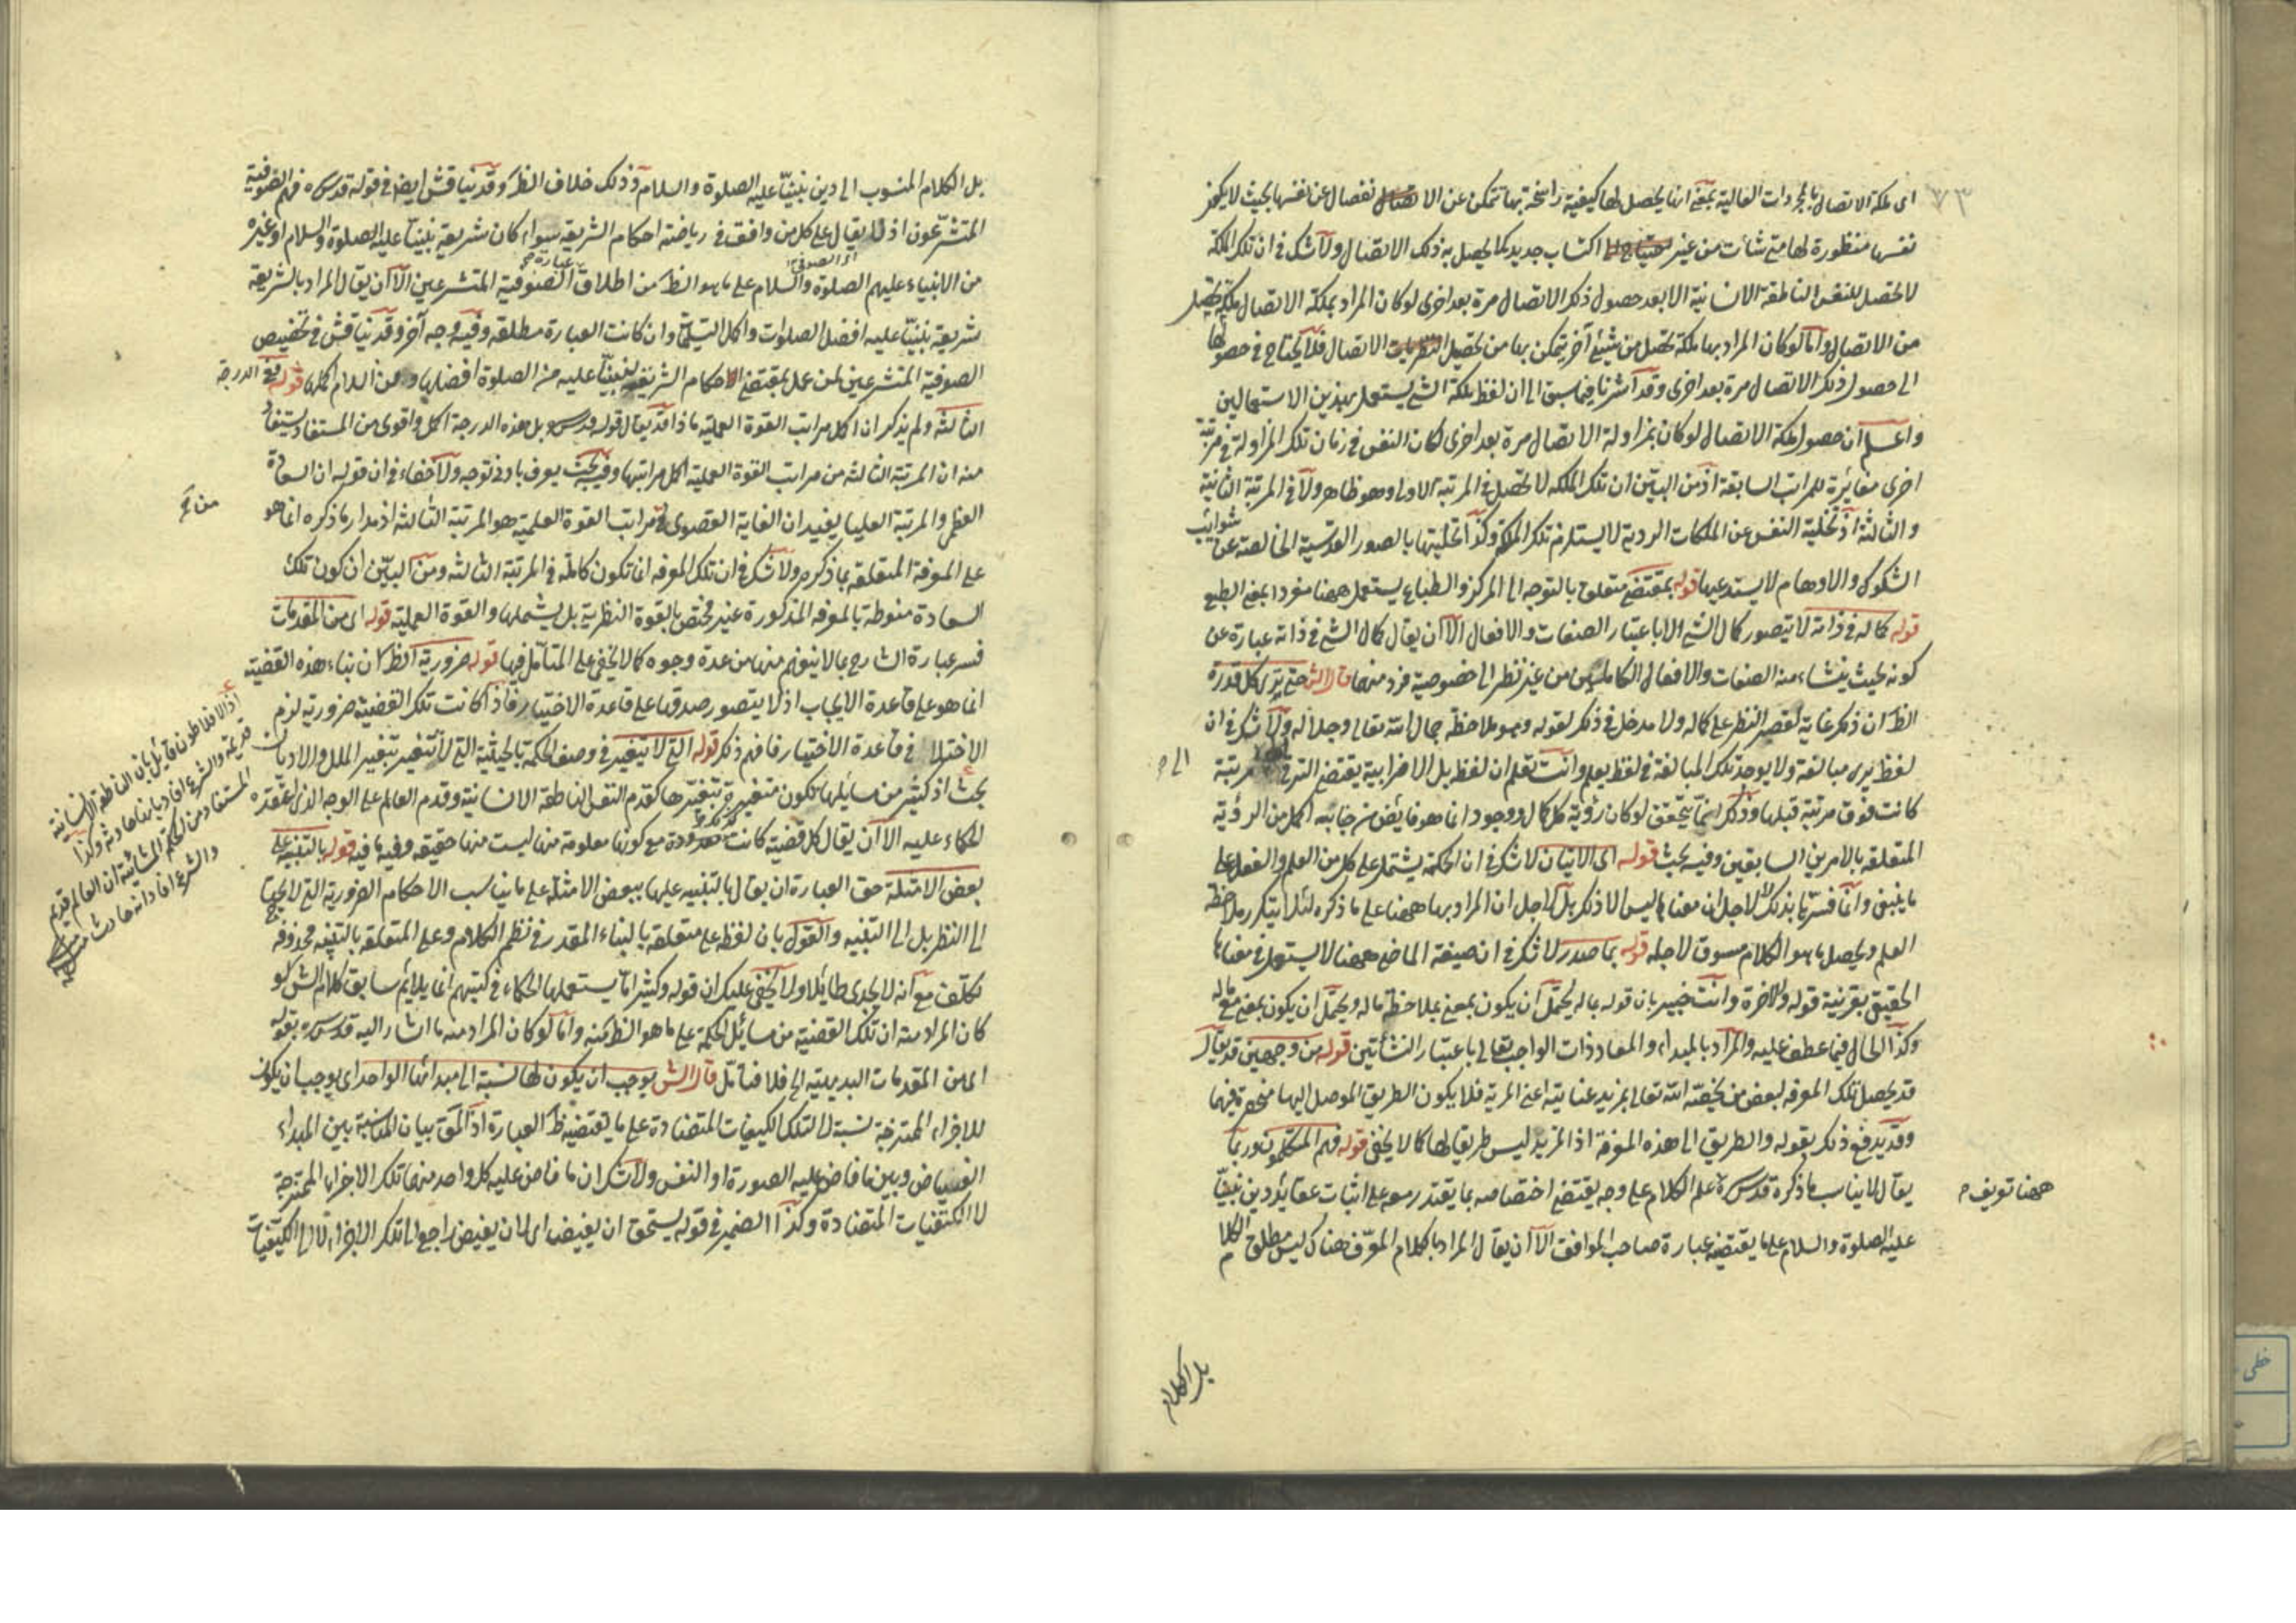 ٧٣
اى ملكة الاتصال بالمجردات العالية بمعنى انها يحصل لها كيفية راسخة بها تتمكن عن الا نفصال عن نفسها بحيث لا يكون
نفسها منظورة لها متى شأت من غير اكتساب جديد كما يحصل به ذلك الاتصال ولا شك فى ان تلك الملكة
لا تحصل للنفس الناطقة الانسانية الا بعد حصول ذلك الاتصال مرة بعد اخرى لو كان المراد بملكة الاتصال ملكة تحصل
من الاتصال واما لو كان المراد بها ملكة تحصل من شيئ آخر يتمكن بها من تحصيل الاتصال فلا يحتاج فى حصولها
الى حصول ذلك الاتصال مرة بعد اخرى وقد اشرنا فيما سبق الى ان لفظ ملكة الشئ يستعمل بهذين الاستعمالين
واعلم ان حصول ملكة الاتصال لو كان بمزاولة الاتصال مرة بعد اخرى لكان النفس فى زمان تلك المزاولة فى مرتبة
اخرى مغايرة للمراتب السابقة اذ من البين ان تلك الملكة لا تحصل فى المرتبة الاولى وهو ظاهر ولا فى المرتبة الثانية
والثالثة اذ تخلية النفس عن الملكات الردية لا يستلزم تلك الملكة وكذا تحليتها بالصور القدسية الخالصة عن شوائب
الشكوك والاوهام لا يستدعيها قوله بمقتضى متعلق بالتوجه الى المركز والطباع يستعمل ههنا مفردا بمعنى الطبع
قوله كماله فى ذاته لا يتصور كمال الشئ الا باعتبار الصفات والافعال الا ان يقال كمال الشئ فى ذاته عبارة عن
كونه بحيث ينشاء منه الصفات والافعال الكاملة من غير نظر الى خصوصية فرد منها قال الش حتى يرى كل قدرة
الظ ان ذكر غاية لقصر النظر على كماله ولا مدخل فى ذكر لقوله وهو ملاحظة جمال الله تعالى وجلاله ولا شك فى ان
لفظ يرى مبالغة ولا يوجد تلك المبالغة فى لفظ يعلم وانت تعلم ان لفظ بل الاضرابية يقتضى الترقى الى مرتبة
كانت فوق مرتبة قبلها وذلك انما يتحقق لو كان رؤية كل كمال ووجود انما هو فايض من جنابه اكمل من الرؤية
المتعلقة بالامرين السابقين وفيه بحث قوله اى الاتيان لا شك فى ان الحكمة يشتمل على كل من العلم والفعل على
ما ينبغى وانما فسرها بذلك لا لاجل ان معناها ليس الا ذكر بل لاجل ان المراد بها ههنا على ما ذكره لئلا يتكرر ملاحظة
العلم ويحصل ما هو الكلام مسوق لاجله قوله بما صدر لا شك فى ان صيغة الماضى ههنا لا يستعمل فى معناها
الحقيقى بقرينة قوله والآخرة وانت خبير بان قوله بماله يحتمل ان يكون بمعنى بملاحظة ماله ويحتمل ان يكون بمعنى مع ماله
وكذا الحال فيما عطف عليه والمراد بالمبداء والمعاد ذات الواجب تعالى باعتبار النشأتين قوله من وجهين قد يقال
قد يحصل تلك المعرفة لبعض من يخصه الله تعالى بمزيد عنايته اعنى المزية فلا يكون الطريق الموصل اليها منحصرة فيهما
وقد يدفع ذلك بقوله والطريق الى هذه المعرفة اذ المزيد ليس طريقا لها كما لا يخفى قوله فهم المتكلمون ربما
يقال لا يناسب ما ذكره قدس سره علم الكلام على وجه يقتضى اختصاصه بما يقتدر معه على اثبات عقايد دين نبينا
عليه الصلوة والسلام على ما يقتضيه عبارة صاحب المواقف الا ان يقال المراد بالكلام المعرف هناك ليس مطلق الكلام
الى م
ههنا تعريف م
بل الكلام
بل الكلام المنسوب الى دين نبينا عليه الصلوة والسلام وذلك خلاف الظ وقد يناقش ايضا فى قوله قدس سره فهم الصوفية
المتشرعون اذ لا يقال على كل من وافق فى رياضته احكام الشريعة سواء كان شريعة نبينا عليه الصلوة والسلام او غيره
من الانبياء عليهم الصلوة والسلام على ما هو الظ من اطلاق الصوفية المتشرعين الا ان يقال المراد بالشريعة
شريعة نبينا عليه افضل الصلوات واكمل التسليمات وان كانت العبارة مطلقة وفيه وجه آخر وقد يناقش فى تخصيص
الصوفية المتشرعين لمن عمل بمقتضى احكام الشريعة لنبينا عليه من الصلوة افضلها ومن السلام اكملها قوله فى الدرجة
الثالثة ولم يذكر ان اكمل مراتب القوة العملية ماذا قد يقال قوله قدس سره بل هذه الدرجة اكمل واقوى من المستفاد يستفاد
منه ان المرتبة الثالثة من مراتب القوة العملية اكمل مراتبها وفيه بحث يعرف بادنى توجه ولا خفاء فى ان قوله ان السعادة
العظمى والمرتبة العليا يفيد ان الغاية القصوى فى مراتب القوة العلمية هو المرتبة الثالثة اذ مدار ما ذكره انما هو
على المعرفة المتعلقة بما ذكره ولا شك فى ان تلك المعرفة انما تكون كاملة فى المرتبة الثالثة ومن البين ان كون تلك
السعادة منوطة بالمعرفة المذكورة غير مختص بالقوة النظرية بل يشملها والقوة العملية قوله اى من المقدمات
فسر عبارة الشارح بما لا ينفهم منها من عدة وجوه كما لا يخفى على المتأمل فيها قوله ضرورية الظ كان بناء هذه القضية
انما هو على قاعدة الايجاب اذ لا يتصور صدقها على قاعدة الاختيار فاذا كانت تلك القضية ضرورية لزم
الاختلال فى قاعدة الاختيار فافهم ذلك قوله التى لا تتغير فى وصف الحكمة بالحيثية التى لا تتغير بتغير الملل والاديان
بحث اذ كثير من مسايلها تكون متغيرة بتغيرها كقدم النفس الناطقة الانسانية وقدم العالم على الوجه الذى اعتقده
الحكماء عليه الا ان يقال كل قضية كانت مع كونها معلومة منها ليست منها حقيقة وفيه ما فيه قوله بالتنبيه على
بعض الامثلة حق العبارة ان يقال بالتنبيه عليها ببعض الامثلة على ما يناسب الاحكام الضرورية التى لا يحتاج
الى النظر بل الى التنبيه والقول بان لفظ على متعلقة بالبناء المقدر فى نظم الكلام وعلى المتعلقة بالتنبيه محذوفة
تكلف مع انه لا يجدى طايلا ولا يخفى عليك ان قوله وكثيرا ما يستعملها الحكماء فى كتبهم انما يلايم سابق كلام الش لو
كان المراد منه ان تلك القضية من مسائل الحكمة على ما هو الظ منه واما لو كان المراد منه ما اشار اليه قدس سره بقوله
اى من المقدمات البديهية الخ فلا فتأمل قال الش يوجب ان يكون لها نسبة الى مبدائها الواحد اى يوجب ان يكون
للاجزاء الممتزجة نسبة لا لتلك الكيفيات المتضادة على ما يقتضيه ظ العبارة اذ المق بيان المناسبة بين المبداء
الفياض وبين ما فاض عليه الصورة او النفس ولا شك ان ما فاض عليه كل واحد منهما تلك الاجزاء الممتزجة
لا الكيفيات المتضادة وكذا الضمير فى قوله يستحق ان يفيض اى لان يفيض راجع الى تلك الاجزاء لا الى الكيفيات
اذ الافلاطون قايل بان الناطقة الانسانية
قديمة والشرع افاد بانها حادثة وكذا
المستفاد من الحكمة المشائية ان العالم قديم
والشرع افاد انه حادث منه
خطى